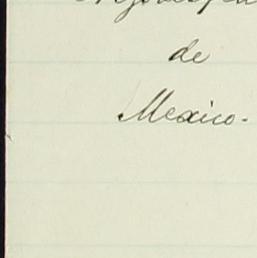 de
Mexico.